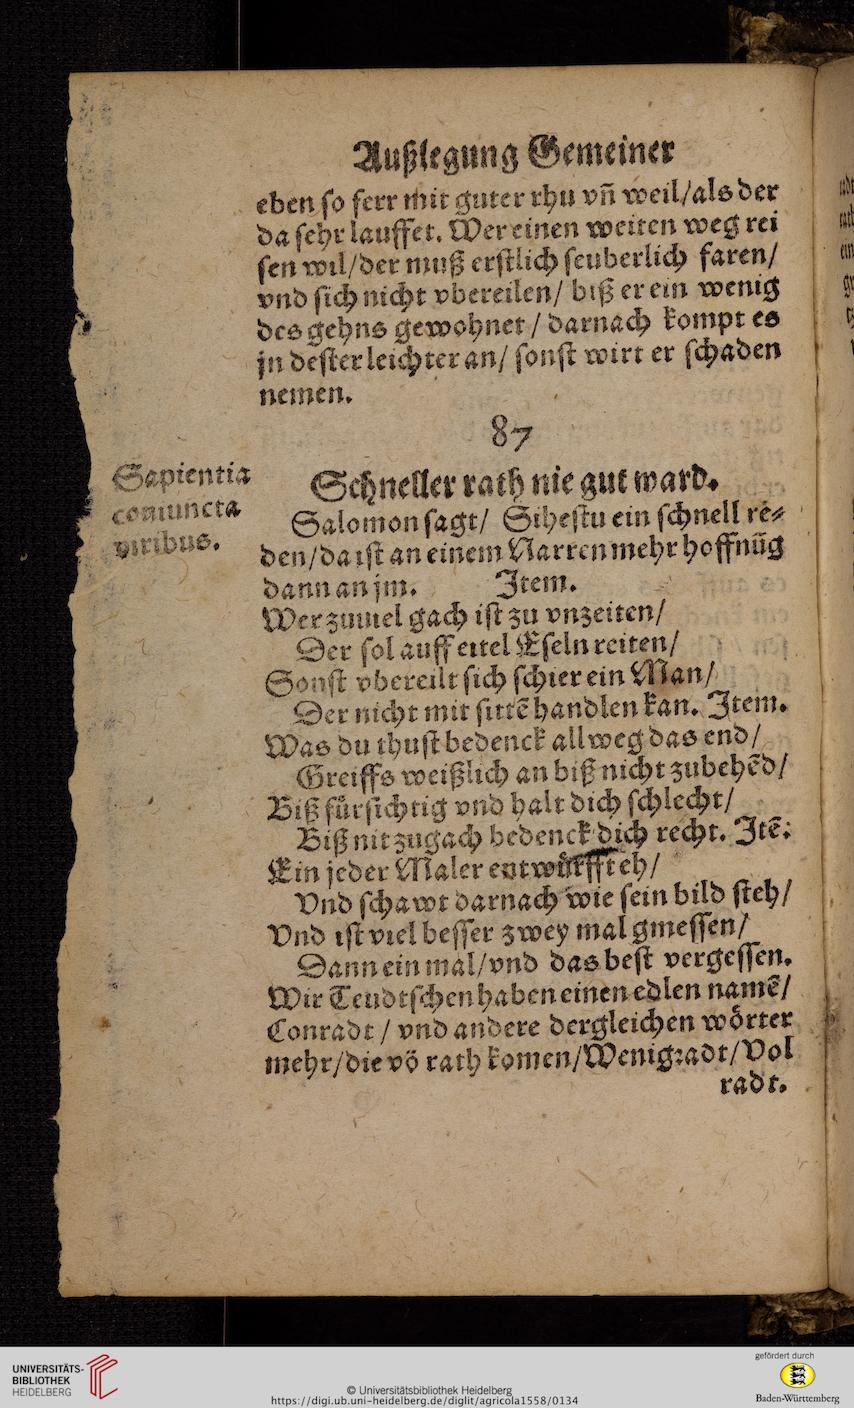 Außlegung Gemeiner
eben so ferr mit guter rhu vñ weil/als der
da sehr lauffet. Wer einen weiten weg rei
sen wil/der muß erstlich seuberlich faren/
vnd sich nicht vbereilen/ biß er ein wenig
des gehns gewohnet/ darnach kompt es
jn dester leichter an/ sonst wirt er schaden
nemen.
87
Sapientia
coniuncta
viribus.
Schneller rath nie gut ward.
Salomon sagt/ Sihestu ein schnell re⸗
den/da ist an einem Narren mehr hoffnũg
dann an jm. Item.
Wer zuuiel gach ist zu vnzeiten/
Der sol auff eitel Eseln reiten/
Sonst vbereilt sich schier ein Man/
Der nicht mit sittẽ handlen kan. Item.
Was du thust bedenck allweg das end/
Greiffs weißlich an biß nicht zubehẽd/
Biß fürsichtig vnd halt dich schlecht/
Biß nit zugach bedenck dich recht. Itẽ.
Ein jeder Maler entwürfft eh/
Vnd schawt darnach wie sein bild steh/
Vnd ist viel besser zwey mal gmessen/
Dann ein mal/vnd das best vergessen.
Wir Teudtschen haben einen edlen namẽ/
Conradt/ vnd andere dergleichen wörter
mehr/die võ rath komen/Wenigradt/Vol
radt.
UNIVERSITÄTS-
BIBLIOTHEK
HEIDELBERG
© Universitätsbibliothek Heidelberg
https://digi.ub.uni-heidelberg.de/diglit/agricola1558/0134
gefördert durch
Baden-Württemberg